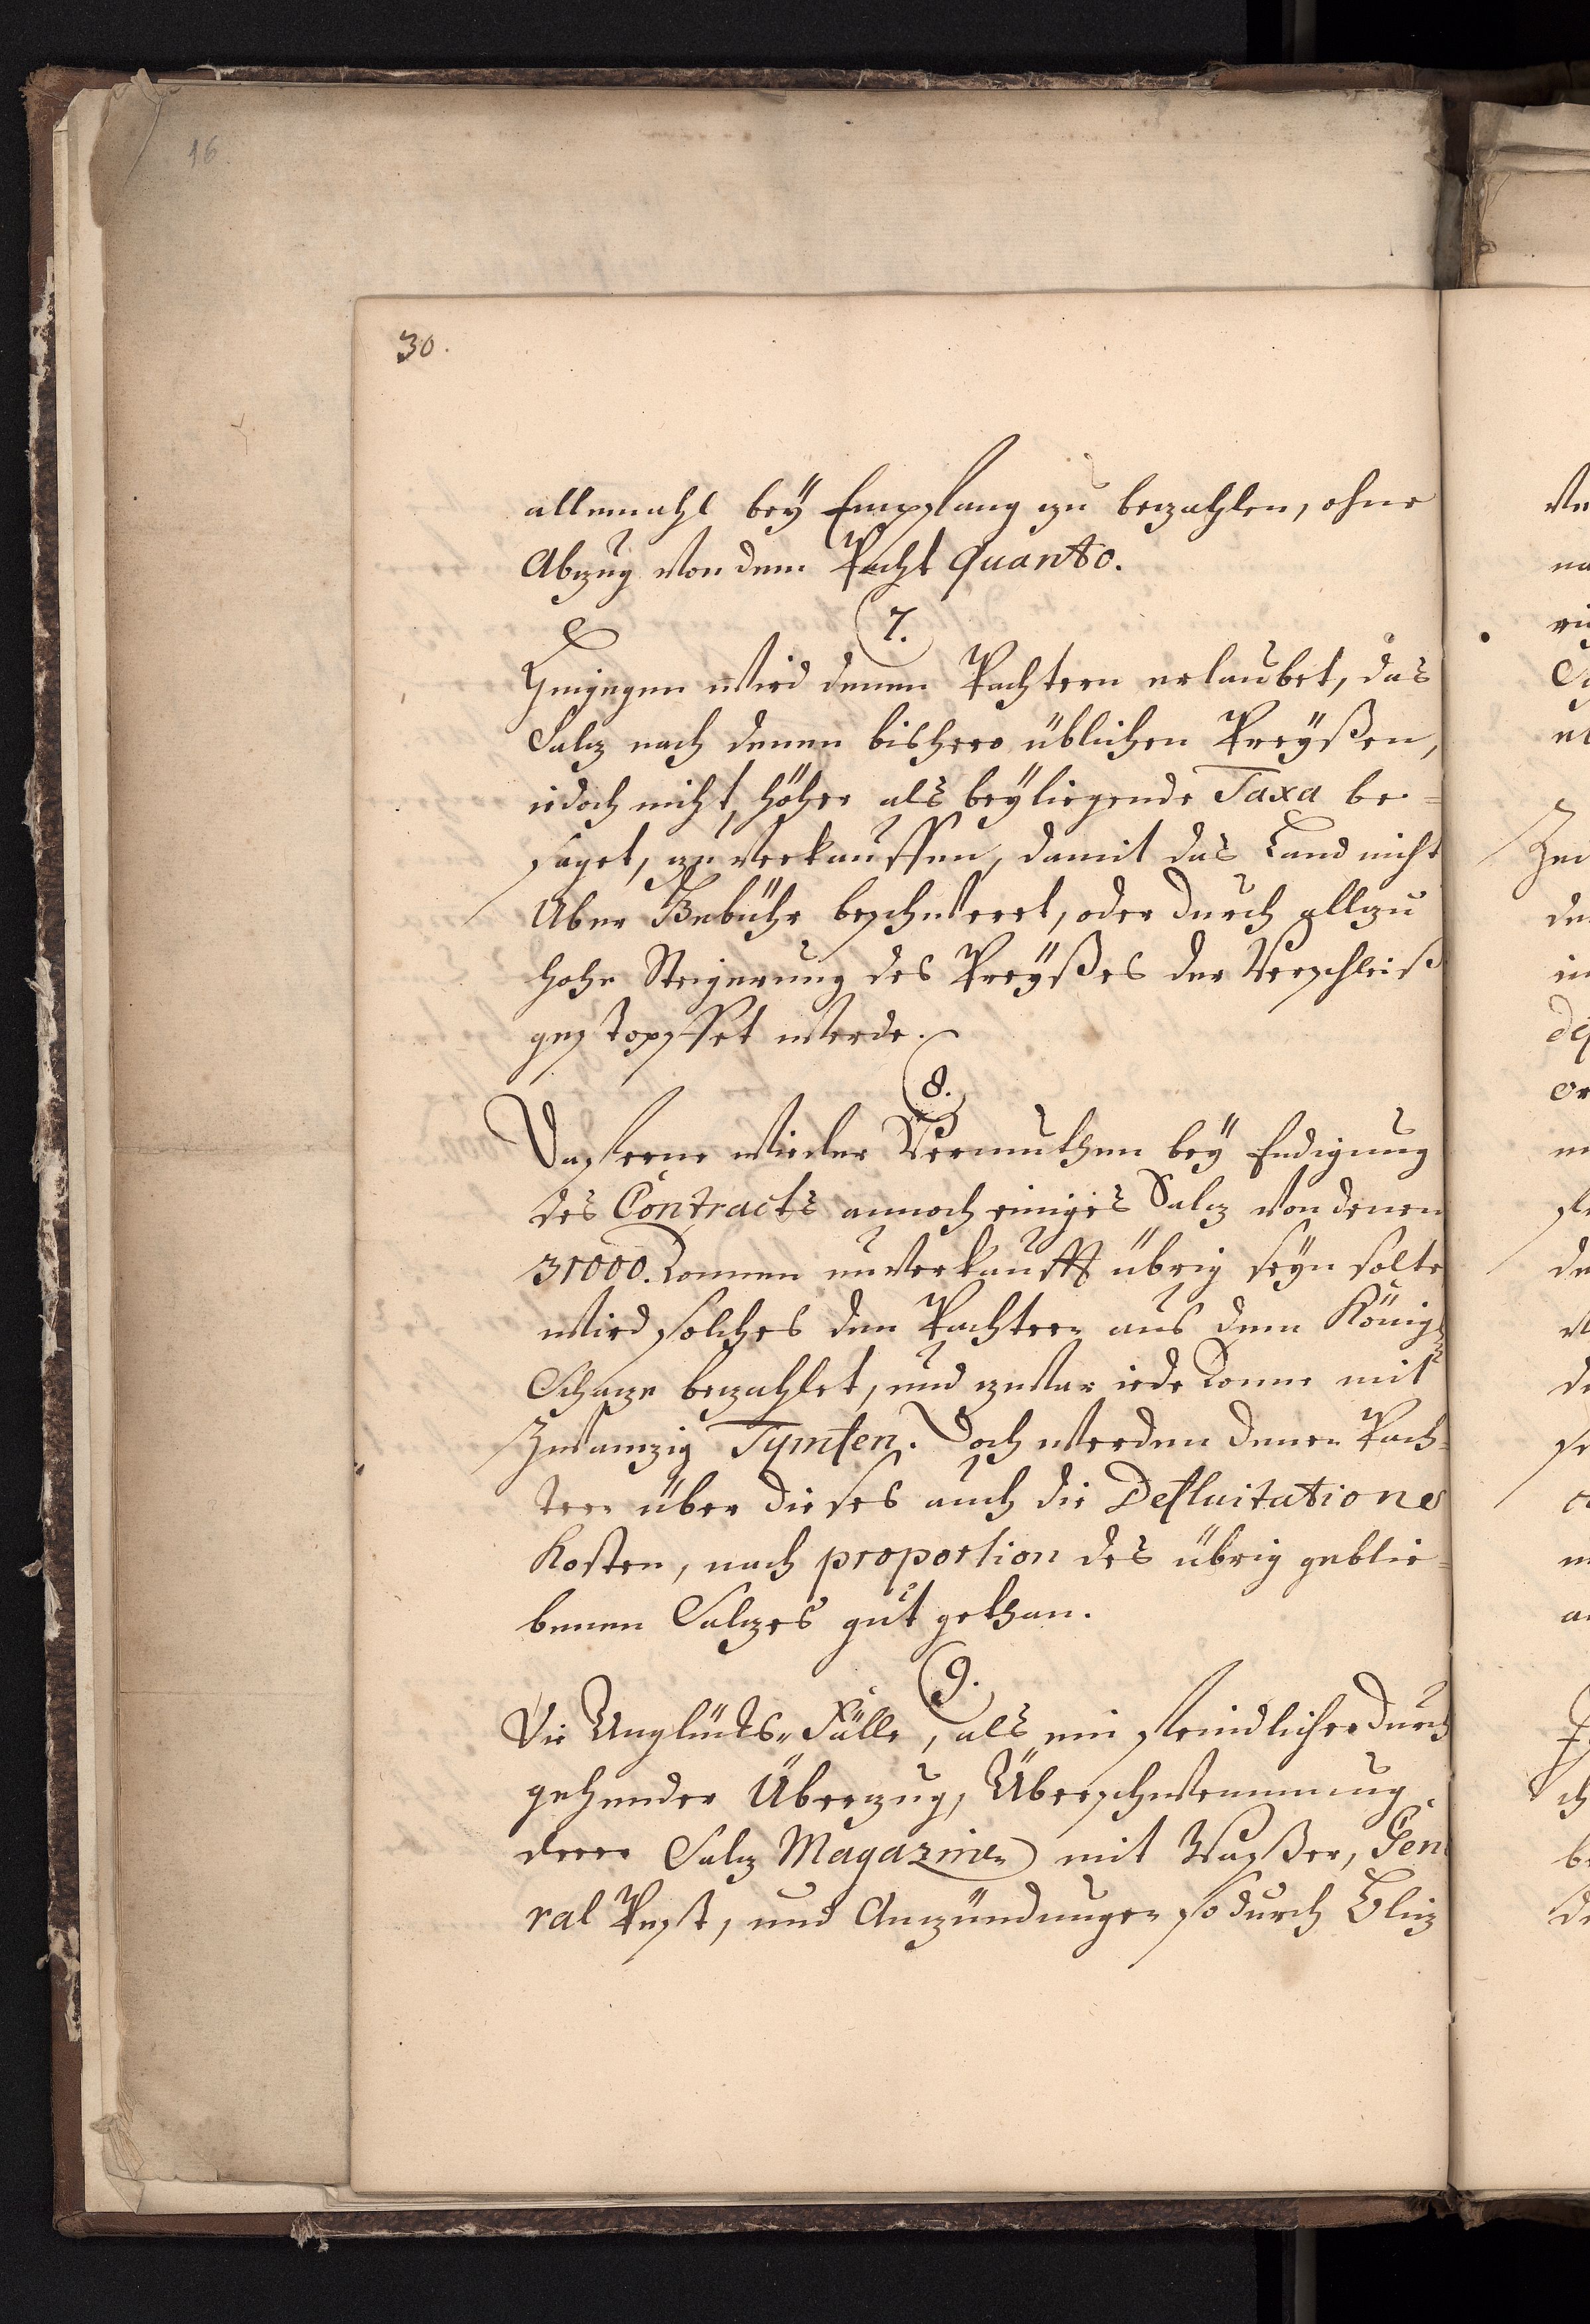 16.
30.
allemahl bey Empfang zu bezahlen, ohne
Abzug von dem Pacht Quanto.
7.
Hingegen wird denen Pachtern erlaubet, das
Salz nach denen bishero üblichen Preyßen,
iedoch nicht höher als beyliegende Taxa be=
saget, zu verkauffen, damit das Land nicht
über Gebühr beschweret, oder durch allzu
hohe Steigerung des Preyßes der Verschleiß
gestopffet werde.
8.
Daferne wieder Vermuthen bey Endigung
des Contracts annoch einiges Salz von denen
31000. Tonnen unverkaufft übrig seyn solte
wird solches den Pachtern aus dem Königl
Schaze bezahlet, und zwar iede Tonne mit
Zwanzig Tymfen. Doch werden denen Pach=
tern über dieses auch die Defluitations
Kosten, nach proportion des übrig geblie=
benen Salzes gut gethan.
9.
Die Unglücks-Fälle, als ein feindlicher durch
gehender Überzug, Überschwemmung
derer Salz Magazinen mit Waßer, Gene
ral Pest, und Anzündungen so durch Bliz